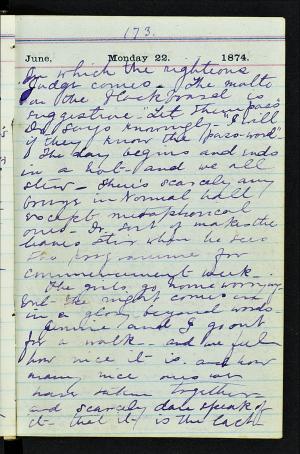 173.
June, Monday 22. 1874.
In which the righteous
Judge comes - The motto
on the blackboard is
suggestive - Let them pass
Dr. says knowingly "I will
if they know the pass-word"-
The day begins and ends
in a hot - and we all
stew - There's scarcely any
in Normal Hall
except metaphorical
ones - Dr. sort of makes the
leaves stir when he sees
the programme for
commencement week -
The girls go home worrying
but the night comes in
in a glory beyond words -
Jennie and I go out
for a walk - and we feel
how nice it is and how
many nice ones we
have taken together -
and scarcely dare speak of
it - that it is the last